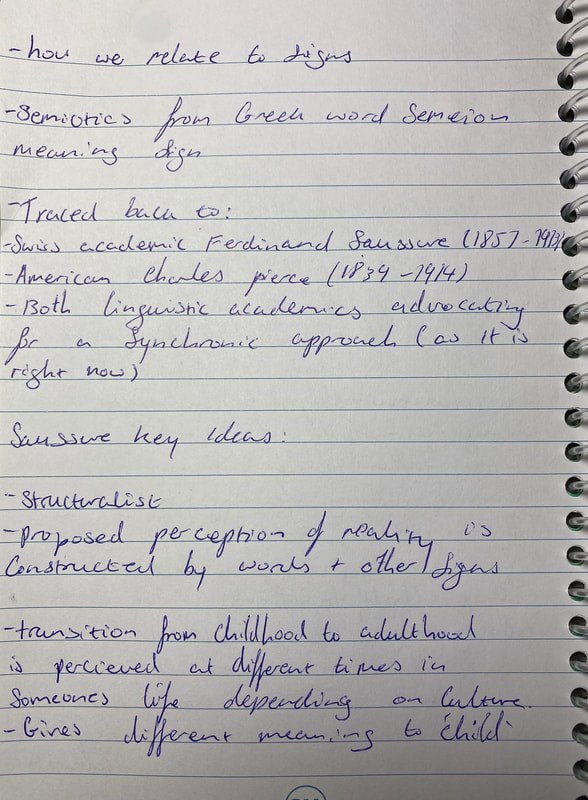 -how we relate to signs
-Semiotics from Greek word Semeion
meaning sign
-Traced back to:
-Swiss academic Ferdinand Saussure (1857-1913)
-American Charles pierce (1839-1914)
-Both linguistic academics advocating
for a synchronic approach (as it is
right now)
Saussure key ideas:
-Structuralist
-proposed perception of reality is
constructed by words + other signs
-transition from childhood to adulthood
is percieved at different times in
someones life depending on culture.
-Gives different meaning to 'child'